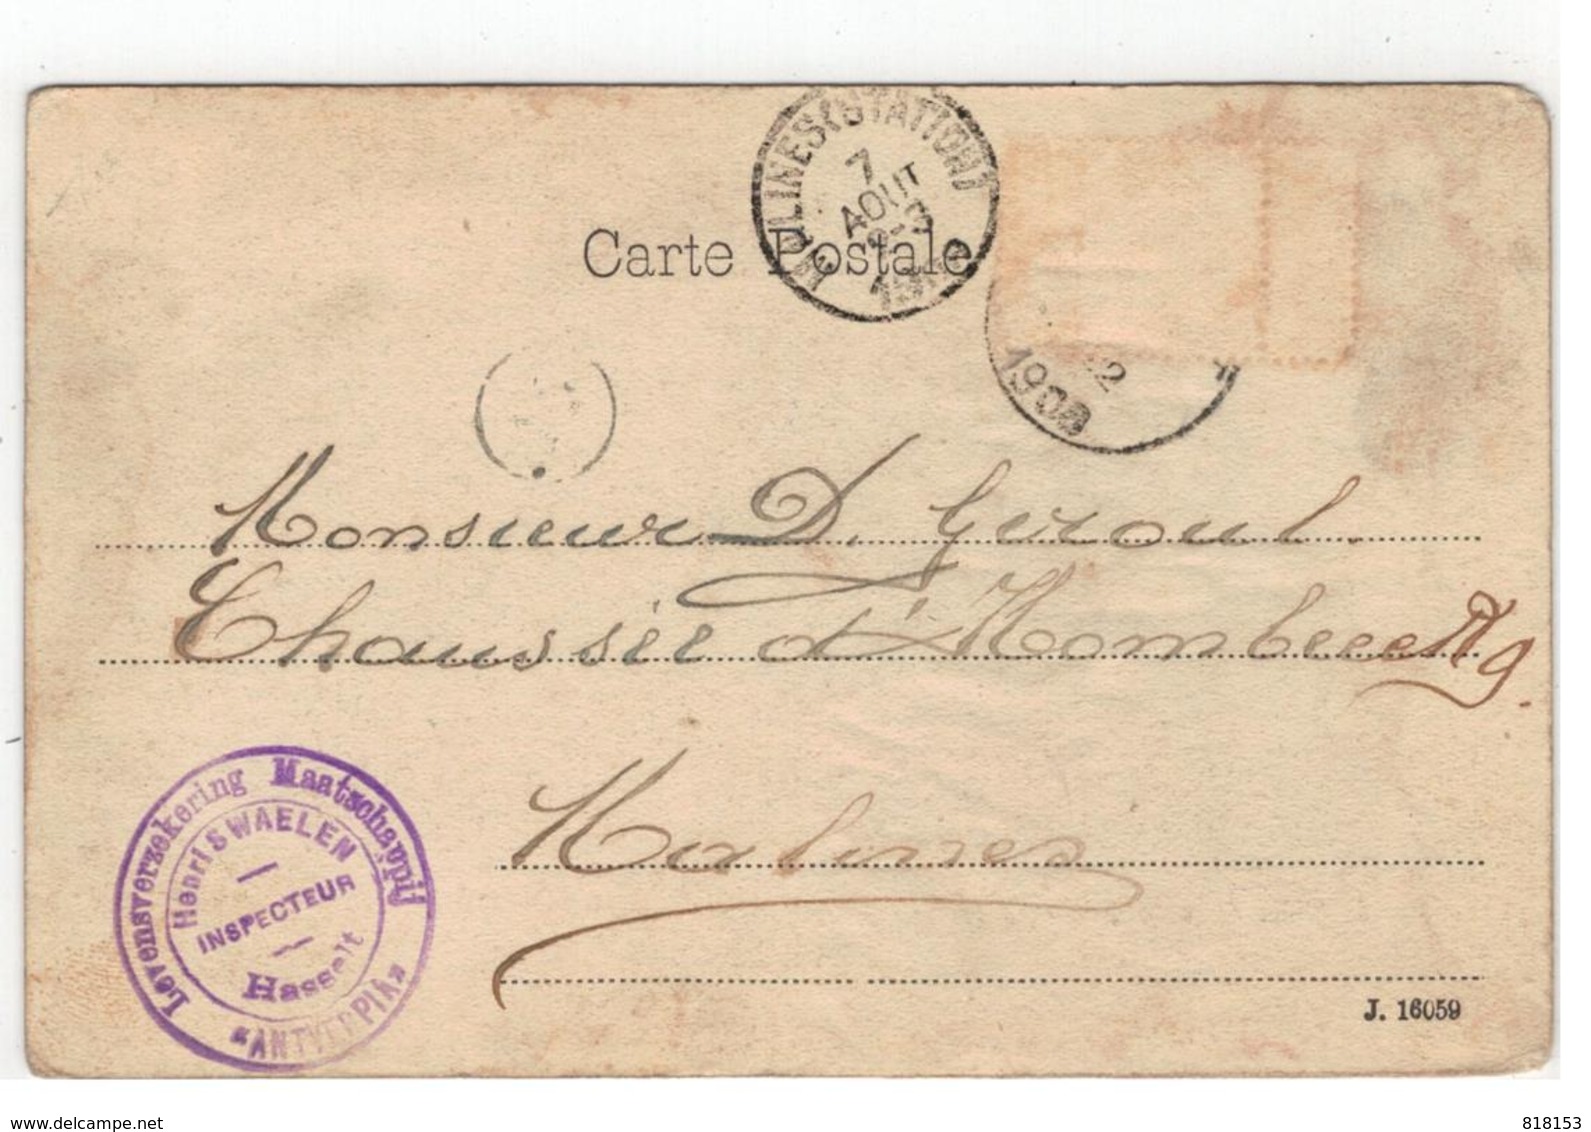 MALINES (STATION)
7
AOUT
Carte Postale
1900
Monsieur D. Geroul
Chaussée d'
Malines
Levensverzekering Maatschappij
Henri SWAELEN
INSPECTEUR
Hasselt
"ANTVERPIA"
J. 16059
www.delcampe.net
818153